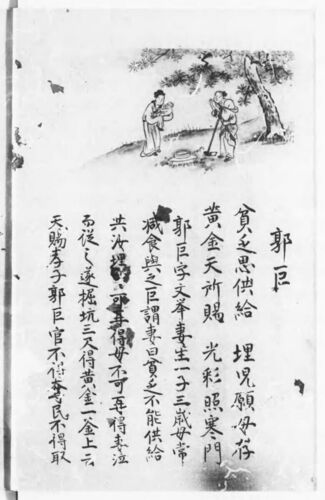 郭巨
貧乏思供給 埋児願母存
黄金天所賜 光彩照寒門
郭巨字文挙妻生一子三歳母常
減食與之巨謂妻曰貧乏不能供給
共汝埋 可再得母不可再得妻泣
而従之遂掘坑三尺得黄金一釜上云
天賜孝子郭巨官不得奪民不得取